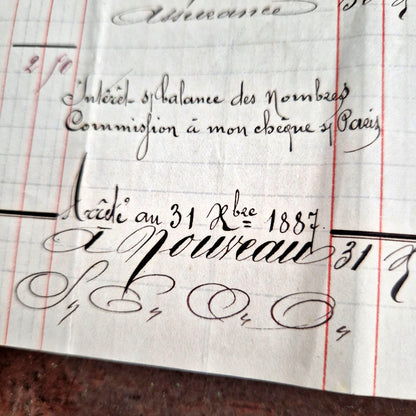 assurance
2 50
Intérêt s/ balance des Nombres
Commission à mon chèque s/ Paris
Arrêté au 31 Xbre 1887.
à Nouveau 31 X
S/, E/, O/, O/,